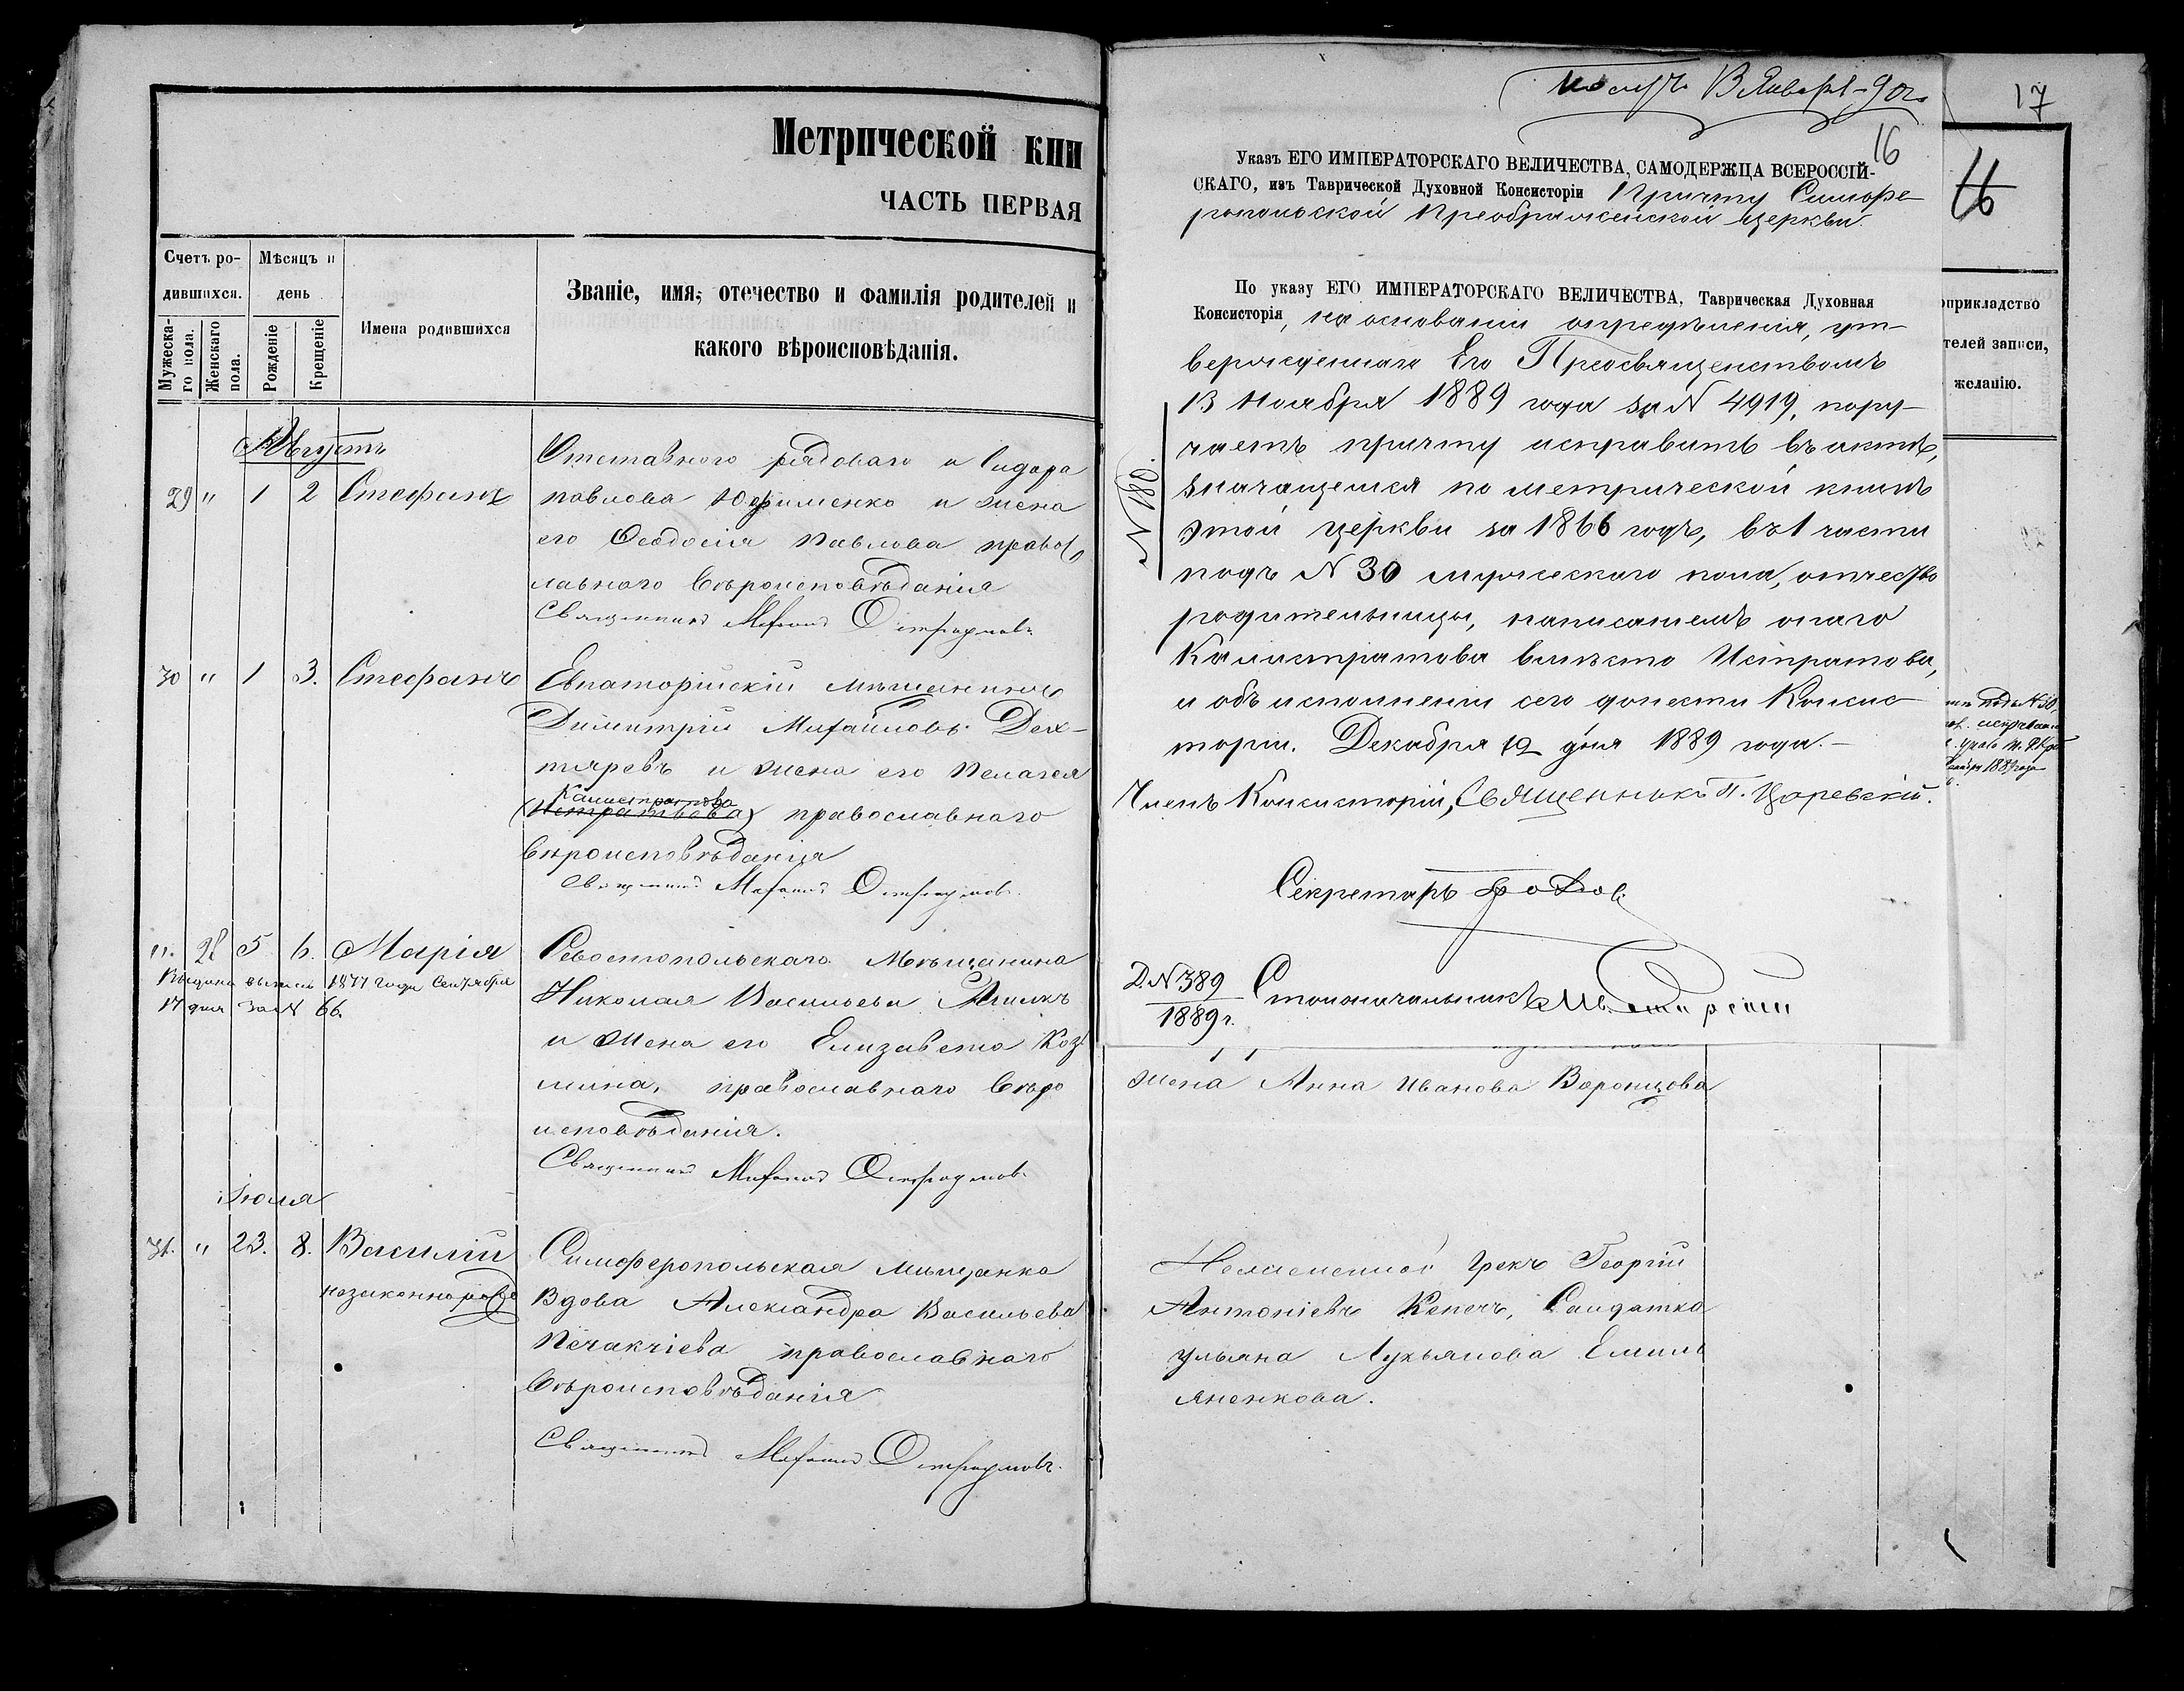 Метрической кни
ЧАСТЬ ПЕРВАЯ
Счетъ ро-
дившихся.
Мѣсяцъ и
день
Мужеска-
го пола.
Женскаго
пола.
Рожденіе
Крещеніе
Имена родившихся
Званіе, имя, отечество и фамилія родителей и
какого вѣроисповѣданія.
Августъ
29 " 1 2 Стефанъ
Отставного рядоваго Исидора
павлова Юфименко и жена
его Ѳеодосія Павлова правос
лавнаго вѣроисповѣданія
Священникъ
30 " 1 3. Стефанъ
Евпаторійскій мѣщанинъ
Димитрій Михайловъ Дех-
тяревъ и жена его Пелагея
Калистратова
(Истратова) православнаго
вѣроисповѣданія
Священникъ
". 28 5 6. Марія
Выдана выпись 1877 года Сентября
17 дня за N 66.
Севостопольскаго Мѣщанина
Николая Васильева
и жена его Елизавета Коз
мина, православнаго вѣро
исповѣданія.
Священникъ
Іюля
31. " 23. 8. Василій
незаконнорожд
Симферопольская мѣщанка
Вдова Александра Васильева
Печакчіева православнаго
вѣроисповѣданія
Священникъ
Получ. 13 Января 90 г.
16
Указъ ЕГО ИМПЕРАТОРСКАГО ВЕЛИЧЕСТВА, САМОДЕРЖЦА ВСЕРОССІЙ-
СКАГО, изъ Таврической Духовной Консисторіи Причту Симфе-
ропольской Преображенской церкви.
По указу ЕГО ИМПЕРАТОРСКАГО ВЕЛИЧЕСТВА, Таврическая Духовная
Консисторія, на основаніи опредѣленія, ут-
вержденнаго Его Преосвященствомъ
13 Ноября 1889 года за N 4919, пору-
чаетъ причту исправить въ актѣ,
значащемся по метрической книгѣ
этой церкви за 1866 годъ, въ 1 части
подъ N 30 мужескаго пола, отчество
родительницы, написаніемъ онаго
Калистратова вмѣсто Истратова,
и объ исполненіи сего донести Консис-
торіи. Декабря 12 дня 1889 года.-
Членъ Консисторіи, Священникъ П. Царевскій.
Секретарь
Д. N 389
1889 г.
Столоначальникъ
жена Анна Иванова Воронцова
Грекъ Георгій
Антоніевъ Кепечъ, Салдатка
ульяна Лукьянова Емель
яненкова.
17
16
оприкладство
телей записи,
желанію.
подъ N 30